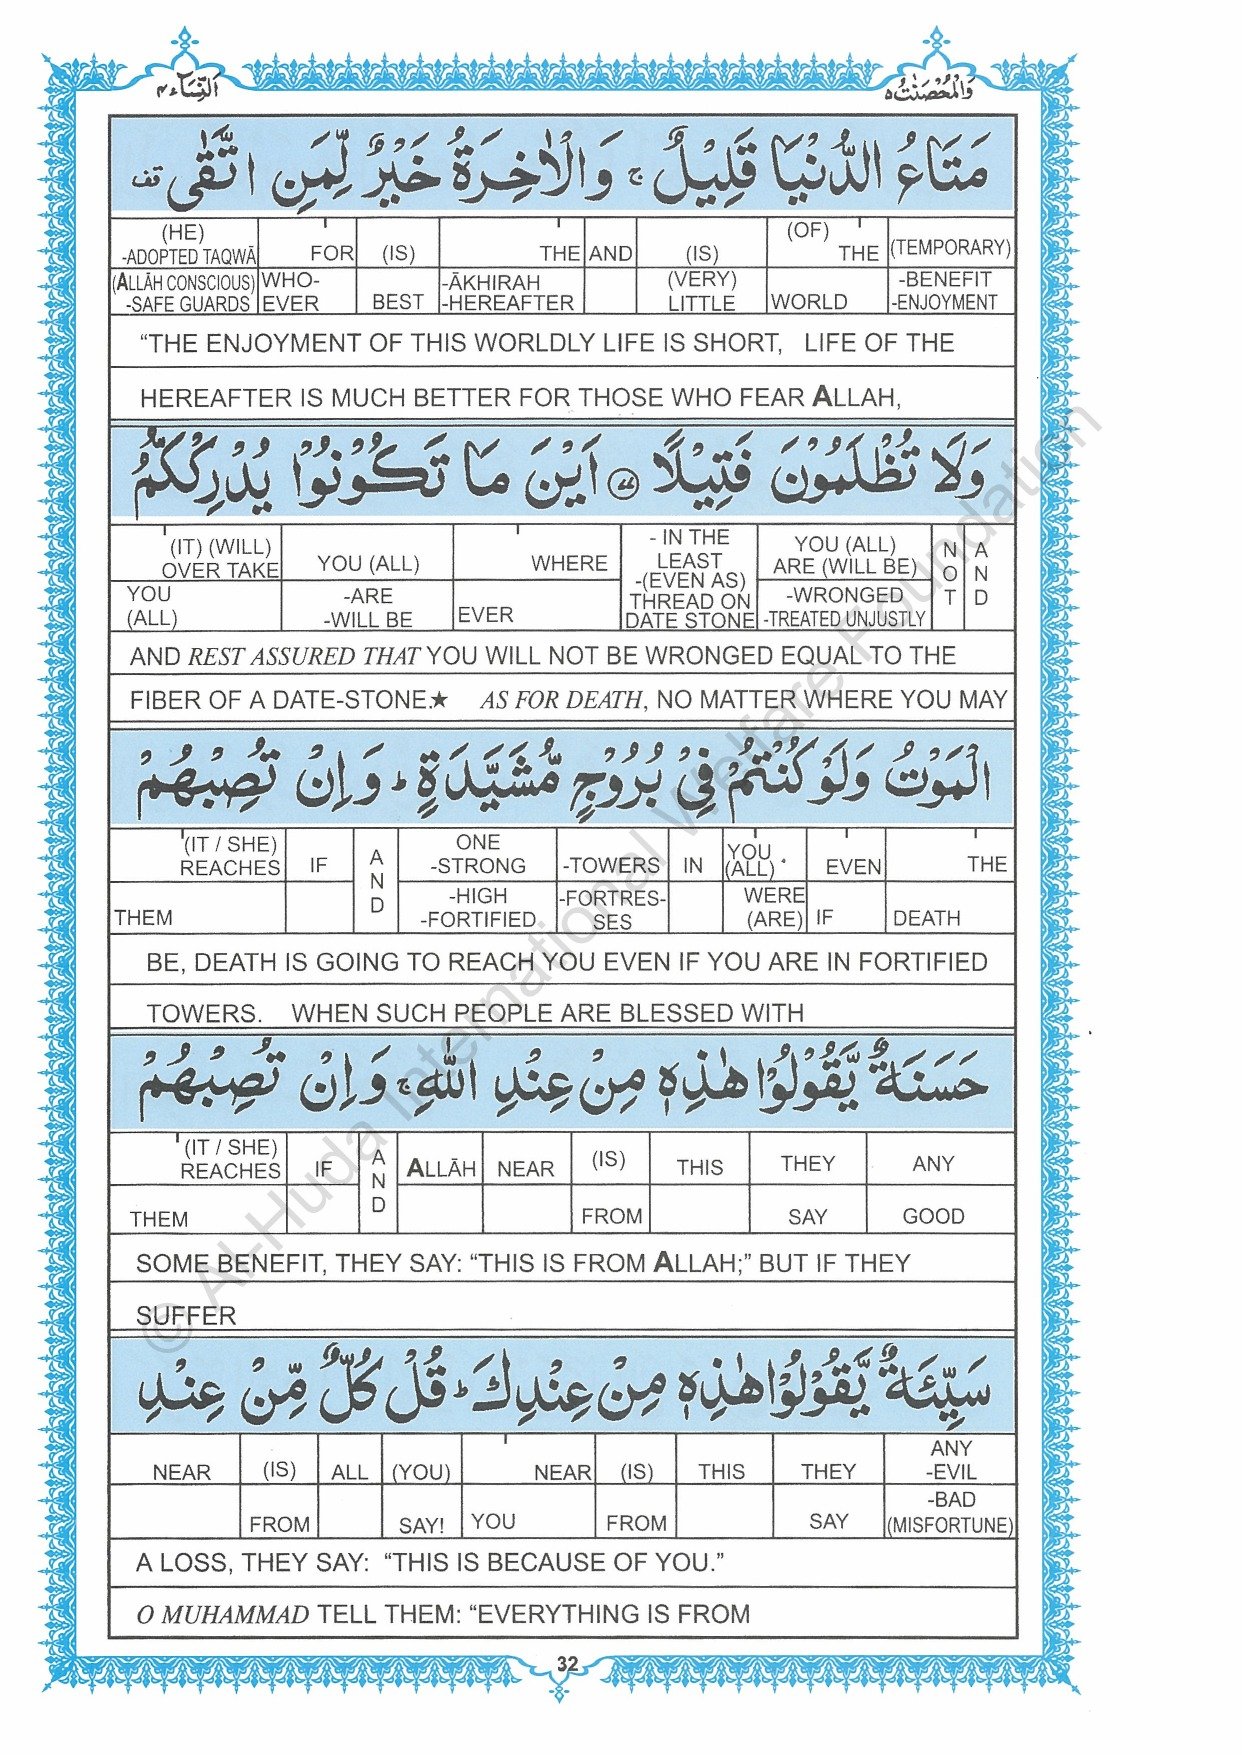 اَلنِّسَآء٤
وَالْمُحْصَنٰتُ٥
مَتَاعُ الدُّنْيَا قَلِيْلٌ ۚ وَالْاٰخِرَةُ خَيْرٌ لِّمَنِ اتَّقٰى قف
(HE) -ADOPTED TAQWĀ FOR (IS) THE AND (IS) (OF) THE (TEMPORARY)
(ALLĀH CONSCIOUS) -SAFE GUARDS WHO-EVER BEST -ĀKHIRAH -HEREAFTER (VERY) LITTLE WORLD -BENEFIT -ENJOYMENT
“THE ENJOYMENT OF THIS WORLDLY LIFE IS SHORT, LIFE OF THE
HEREAFTER IS MUCH BETTER FOR THOSE WHO FEAR ALLAH,
وَلَا تُظْلَمُوْنَ فَتِيْلًا ﴿٧٧﴾ اَيْنَ مَا تَكُوْنُوْا يُدْرِكْكُّمُ
(IT) (WILL) OVER TAKE YOU (ALL) WHERE - IN THE LEAST -(EVEN AS) THREAD ON DATE STONE YOU (ALL) ARE (WILL BE) NOT AND
YOU (ALL) -ARE -WILL BE EVER -WRONGED -TREATED UNJUSTLY
AND REST ASSURED THAT YOU WILL NOT BE WRONGED EQUAL TO THE
FIBER OF A DATE-STONE.★ AS FOR DEATH, NO MATTER WHERE YOU MAY
الْمَوْتُ وَلَوْ كُنْتُمْ فِيْ بُرُوْجٍ مُّشَيَّدَةٍ ؕ وَاِنْ تُصِبْهُمْ
(IT / SHE) REACHES IF AND ONE -STRONG -TOWERS IN YOU (ALL) EVEN THE
THEM -HIGH -FORTIFIED -FORTRES-SES WERE (ARE) IF DEATH
BE, DEATH IS GOING TO REACH YOU EVEN IF YOU ARE IN FORTIFIED
TOWERS. WHEN SUCH PEOPLE ARE BLESSED WITH
حَسَنَةٌ يَّقُوْلُوْا هٰذِهٖ مِنْ عِنْدِ اللّٰهِ ۚ وَاِنْ تُصِبْهُمْ
(IT / SHE) REACHES IF AND ALLĀH NEAR (IS) THIS THEY ANY
THEM FROM SAY GOOD
SOME BENEFIT, THEY SAY: “THIS IS FROM ALLAH;” BUT IF THEY
SUFFER
سَيِّئَةٌ يَّقُوْلُوْا هٰذِهٖ مِنْ عِنْدِكَ ؕ قُلْ كُلٌّ مِّنْ عِنْدِ
NEAR (IS) ALL (YOU) NEAR (IS) THIS THEY ANY -EVIL
FROM SAY! YOU FROM SAY -BAD (MISFORTUNE)
A LOSS, THEY SAY: “THIS IS BECAUSE OF YOU.”
O MUHAMMAD TELL THEM: “EVERYTHING IS FROM
32
© Al-Huda International Welfare Foundation